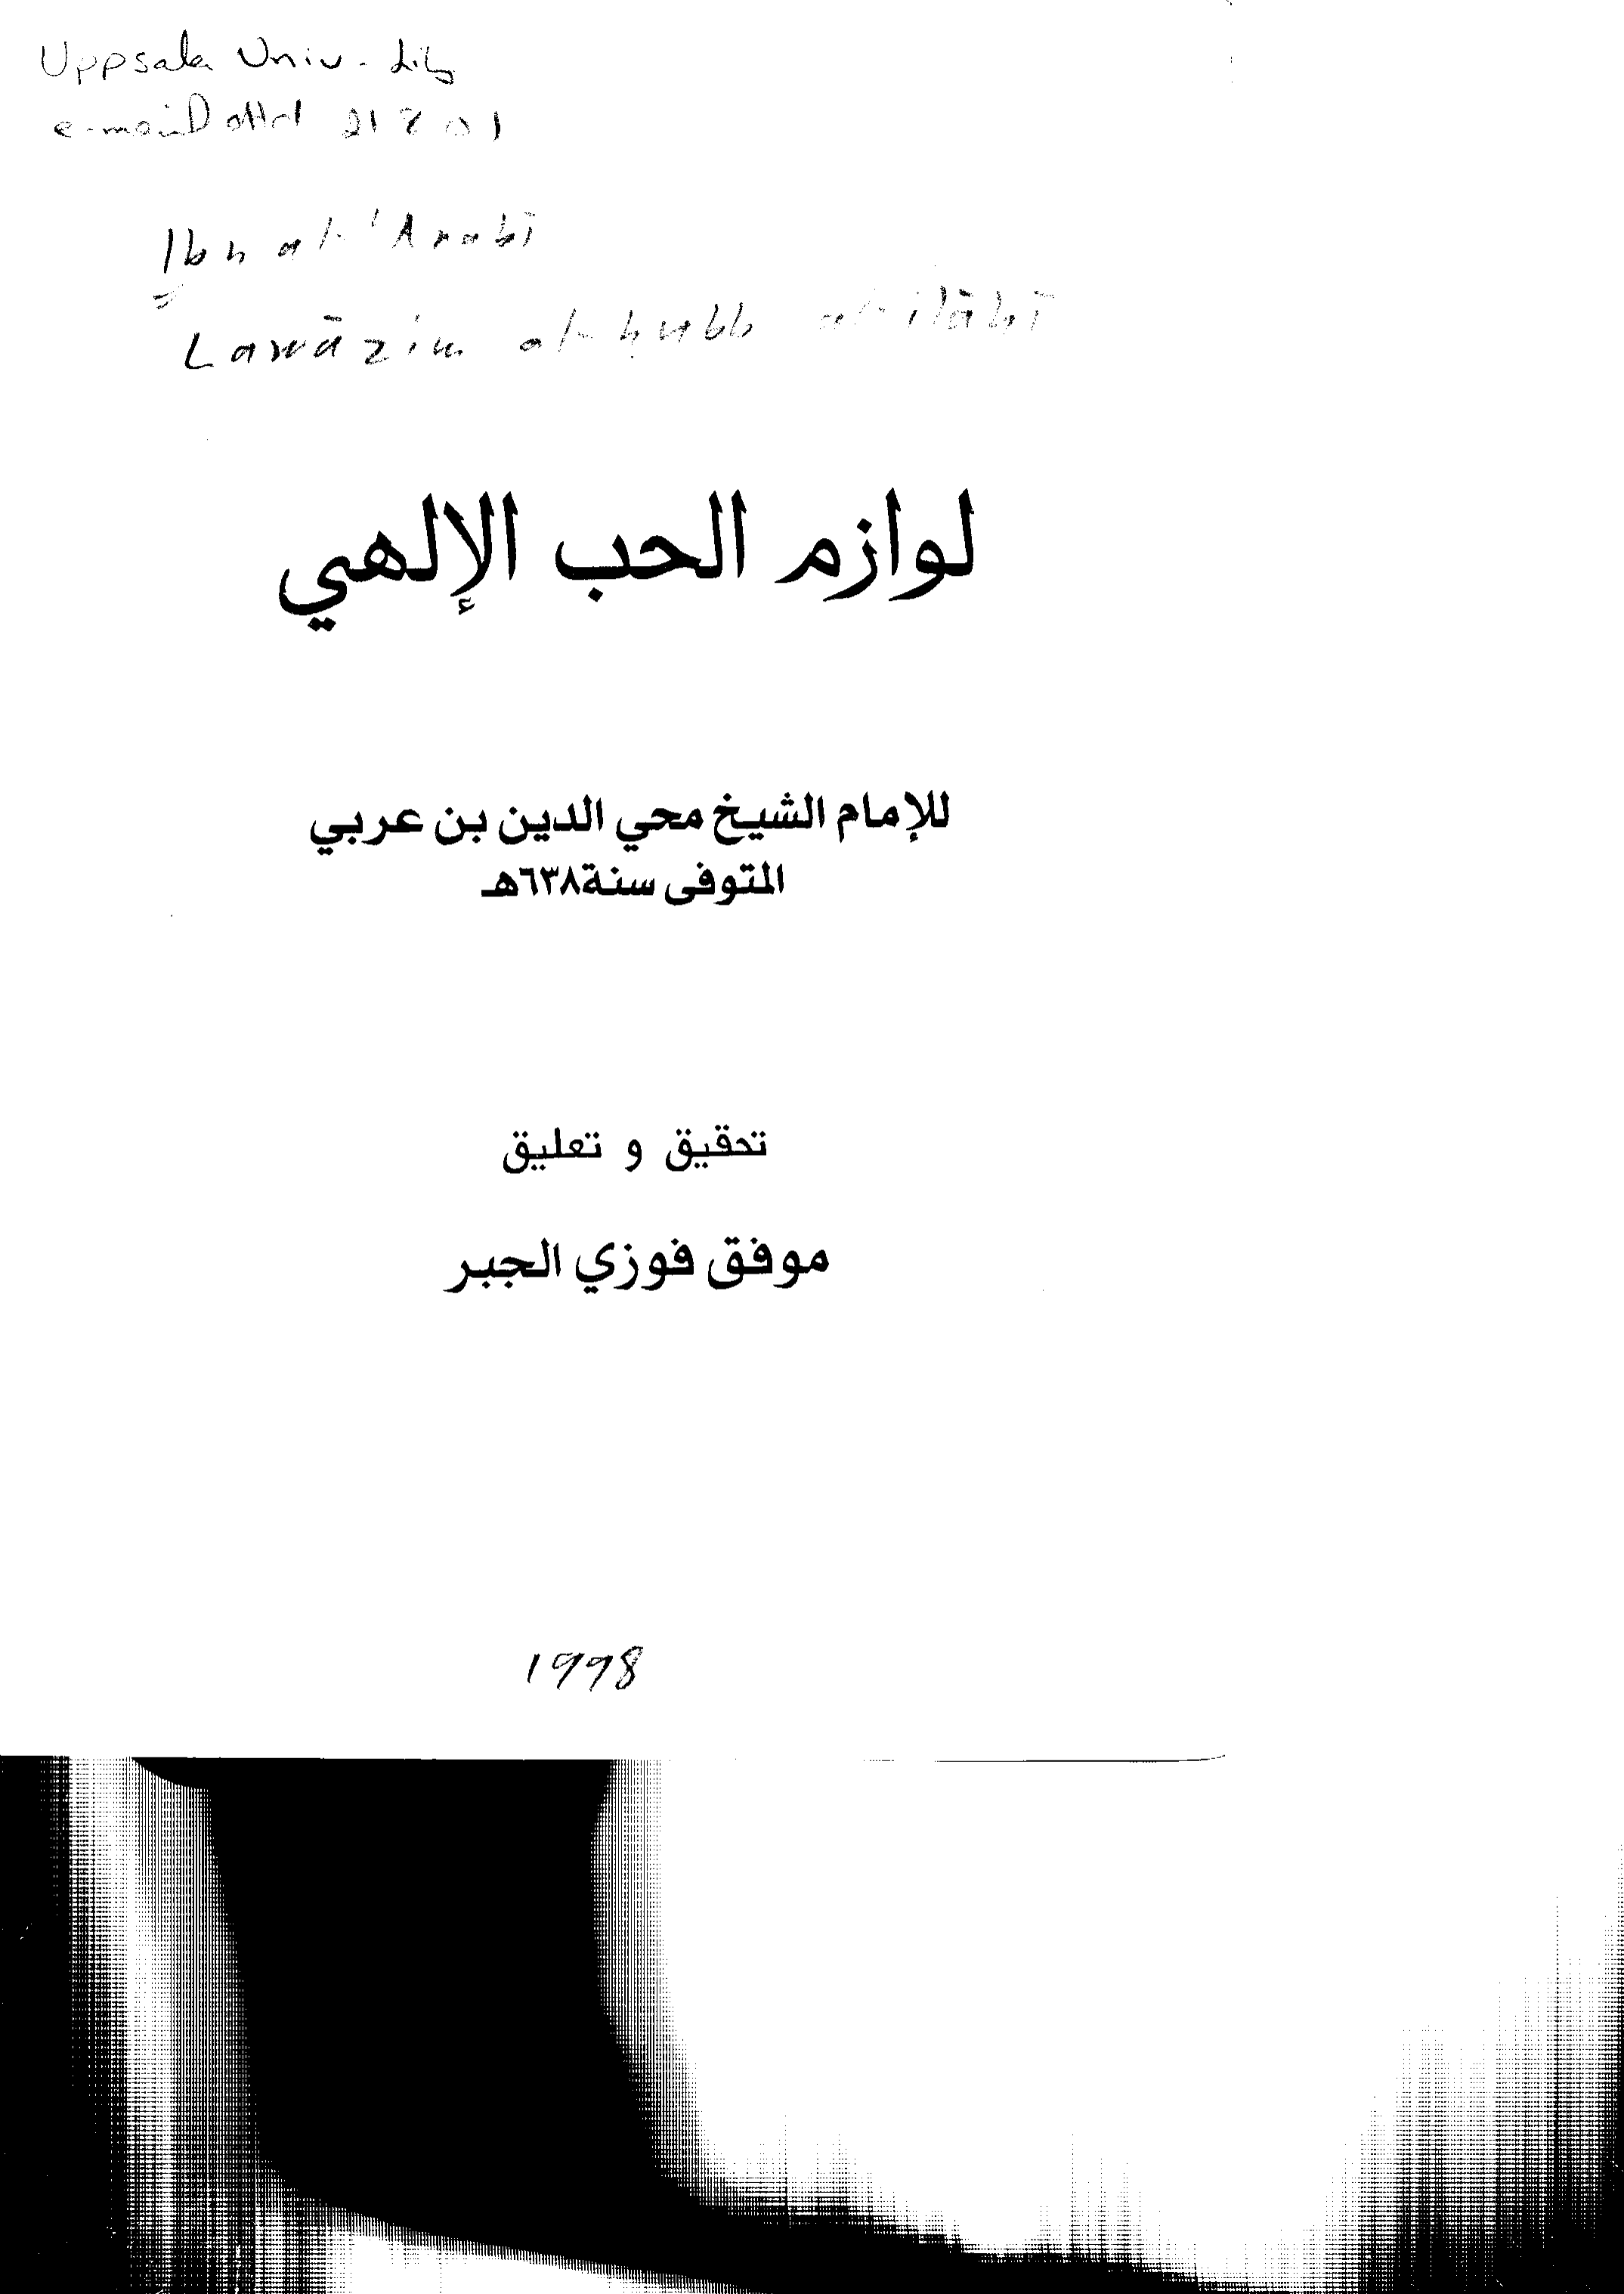 Uppsala Univ. Lib
e-mail 21 8 01
Ibn al-'Arabī
Lawāzim al-ḥubb al-ilāhī
لوازم الحب الإلهي
للإمام الشيخ محي الدين بن عربي
المتوفى سنة٦٣٨هـ
تحقيق و تعليق
موفق فوزي الجبر
1998